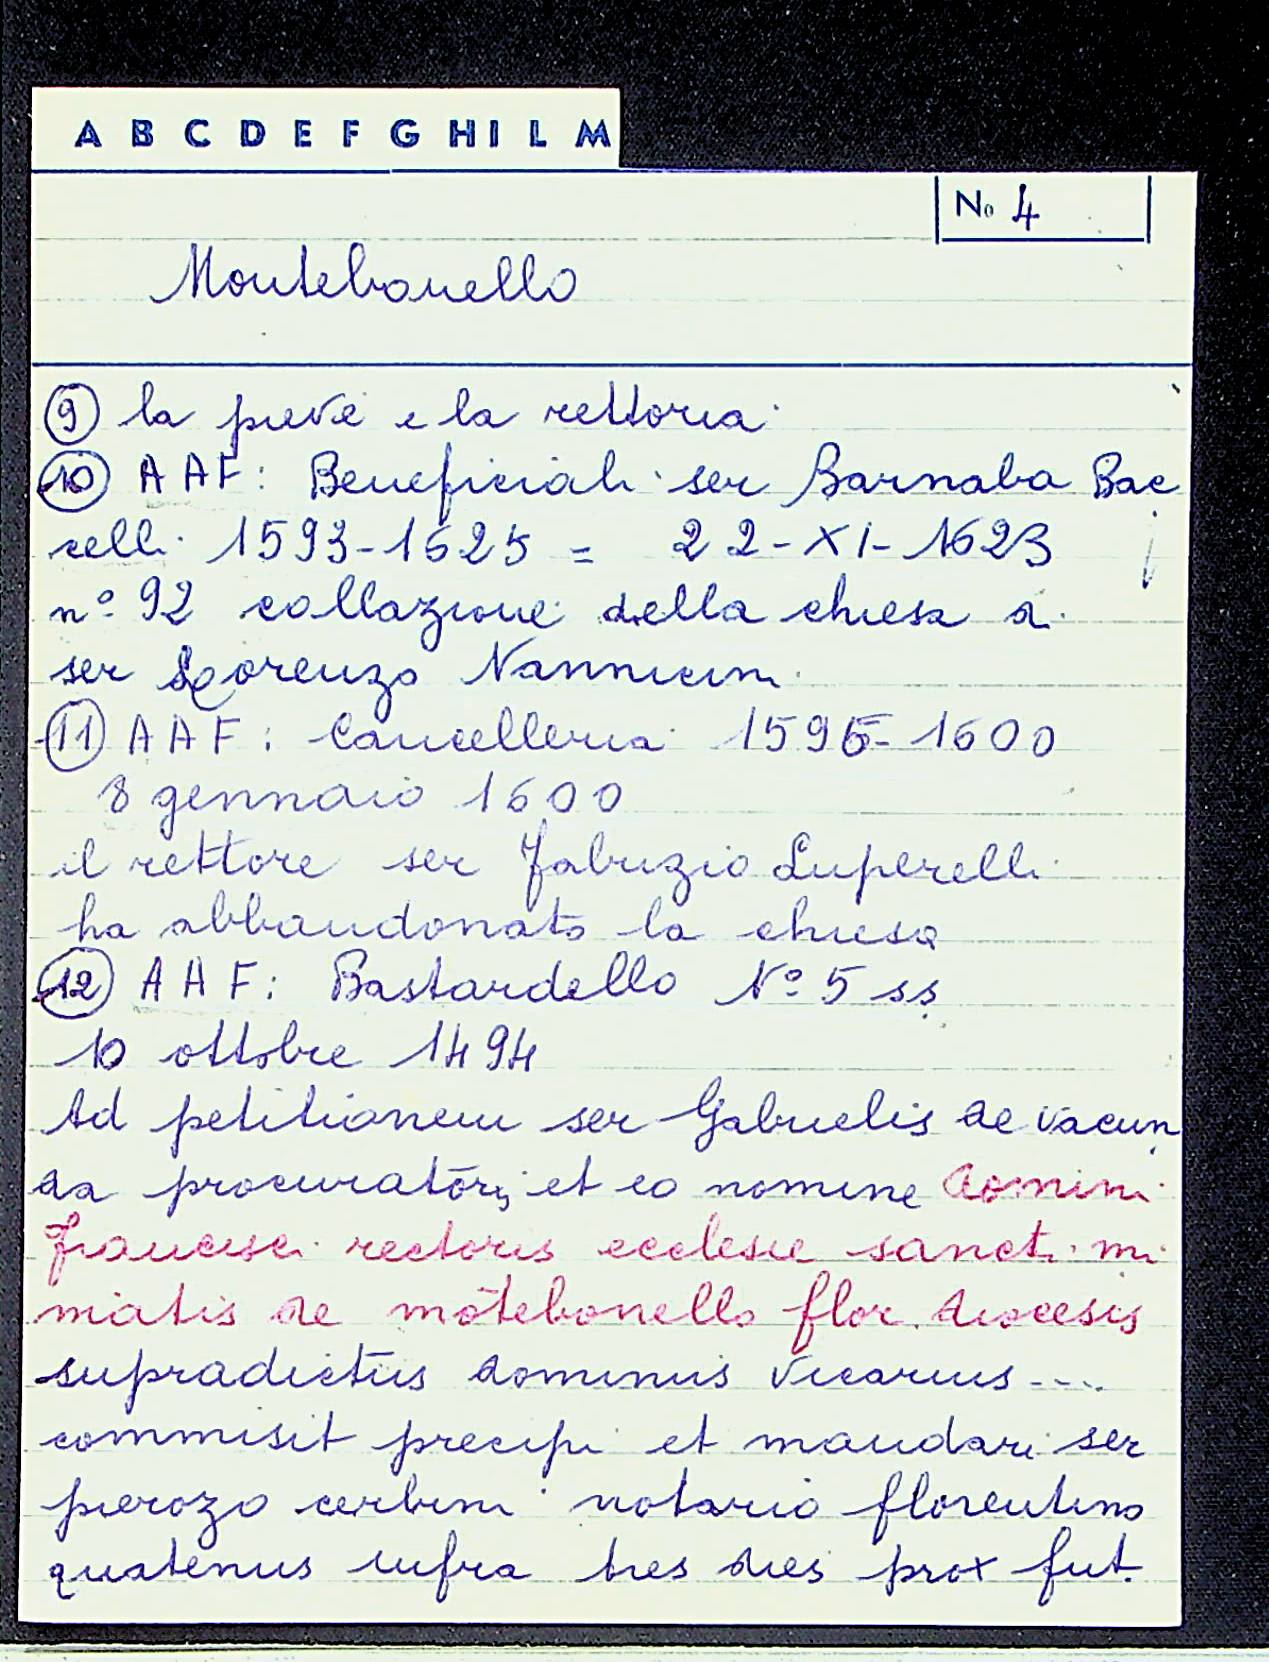 A B C D E F G H I L M
No 4
Montebonello
9 la pieve e la rettoria
10 AAF: Beneficiali ser Barnaba Bac
celli 1593-1625 = 22-XI-1623
nº 92 collazione della chiesa a
ser Lorenzo Nannicini
11 AAF: Cancelleria 1595-1600
8 gennaio 1600
il rettore ser Fabrizio Luperelli
ha abbandonato la chiesa
12 AAF: Bastardello Nº 5 ss
10 ottobre 1494
Ad petitionem ser Gabrielis de vacun
da procuratōrs et eo nomine domini
francisci rectoris ecclesie sancti mi
niatis de mōtebonello flor. diocesis
supradictus dominus vicarius ....
commisit precipi et mandari ser
pierozo cerbini notario florentino
quatenus infra tres dies prox fut.